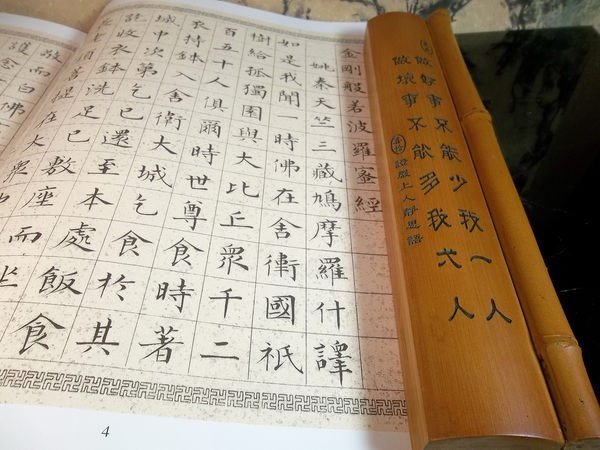 做好事不能少我一人
做壞事不能多我弌人
證嚴上人靜思語
金剛般若波羅蜜經
姚秦天竺三藏鳩摩羅什譯
如是我聞一時佛在舍衛國祇
樹給孤獨園與大比丘眾千二
百五十人俱爾時世尊食時著
衣持鉢入舍衛大城乞食於其
城中次第乞已還至本處飯食
訖收衣鉢洗足已敷座而坐
長老須菩提在大眾
敬而白佛
護念
4